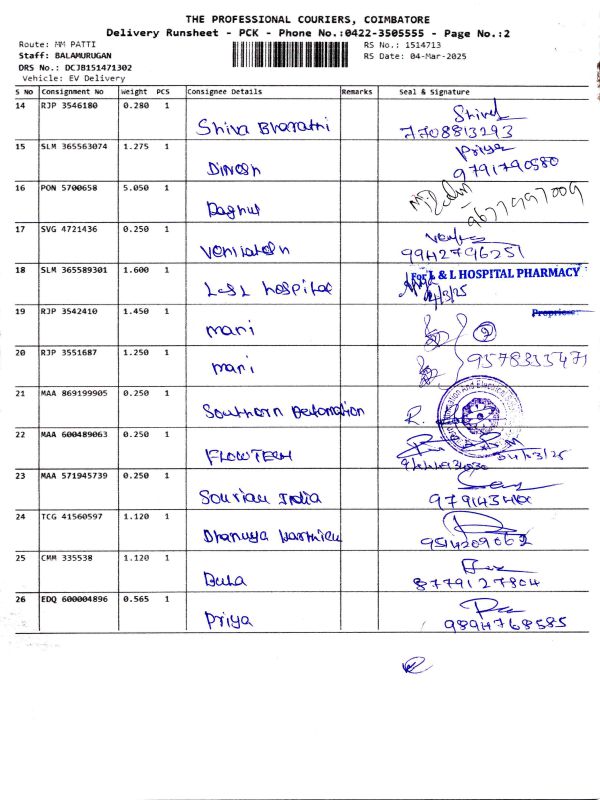 THE PROFESSIONAL COURIERS, COIMBATORE
Delivery Runsheet - PCK - Phone No.:0422-3505555 - Page No.:2
Route: MM PATTI
RS No.: 1514713
Staff: BALAMURUGAN
RS Date: 04-Mar-2025
DRS No.: DCJB151471302
Vehicle: EV Delivery
S No Consignment No Weight PCS Consignee Details Remarks Seal & Signature
14 RJP 3546180 0.280 1
Shiva Bharathi 7708813293
15 SLM 365563074 1.275 1 Priya
Dinesh 9791790580
16 PON 5700658 5.050 1
9677997009
17 SVG 4721436 0.250 1
9942796251
18 SLM 365589301 1.600 1 For L & L HOSPITAL PHARMACY
L&L hospital 4/3/25
19 RJP 3542410 1.450 1
mani 2
20 RJP 3551687 1.250 1
mani
21 MAA 869199905 0.250 1
Southern
22 MAA 600489063 0.250 1
FLOWTECH 04/03/25
23 MAA 571945739 0.250 1
Souriau India
24 TCG 41560597 1.120 1
9514209062
25 CMM 335538 1.120 1
8779127804
26 EDQ 600004896 0.565 1
Priya 9894768585